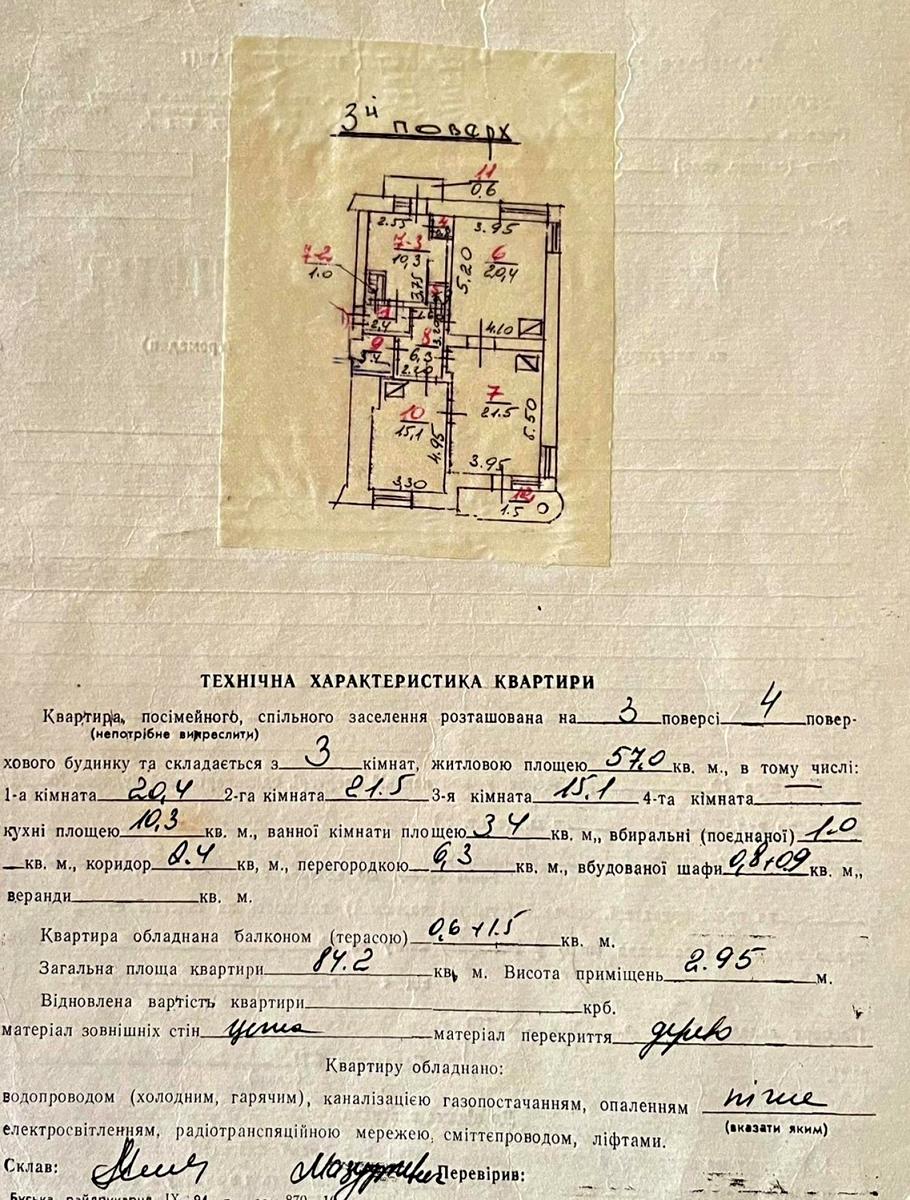 3й поверх
11
0.6
2.55
4
3.95
7-3
10,3
5.20
6
20,4
7-2
1.0
3.75
5
1
2,4
8
6,3
3.20
2.10
4.10
9
3.4
7
21.5
6.50
10
15,1
4.95
3.95
3,30
12
1.5
ТЕХНІЧНА ХАРАКТЕРИСТИКА КВАРТИРИ
Квартира, посімейного, спільного заселення розташована на 3 поверсі 4 повер-
(непотрібне викреслити)
хового будинку та складається з 3 кімнат, житловою площею 57.0 кв. м., в тому числі:
1-а кімната 20,4 2-га кімната 21.5 3-я кімната 15.1 4-та кімната
кухні площею 10,3 кв. м., ванної кімнати площею 3 4 кв. м,, вбиральні (поєднаної) 1.0
кв. м., коридор 2.4 кв, м., перегородкою 6,3 кв. м., вбудованої шафи 0,8+0.9 кв. м,,
веранди кв. м.
Квартира обладнана балконом (терасою) 0,6+1.5 кв. м.
Загальна площа квартири 84.2 кв, м. Висота приміщень 2.95 м.
Відновлена вартість квартири крб.
матеріал зовнішніх стін цегла матеріал перекриття дерево
Квартиру обладнано:
водопроводом (холодним, гарячим), каналізацією газопостачанням, опаленням пічне
(вказати яким)
електросвітленням, радіотранспяційною мережею, сміттєпроводом, ліфтами.
Склав: Перевірив: